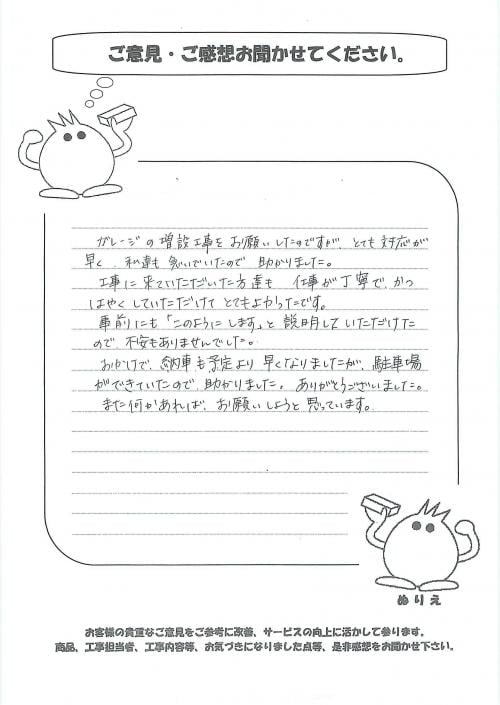 ご意見・ご感想お聞かせてください。
ガレージの増設工事をお願いしたのですが、とても対応が
早く、私達も急いでいたので 助かりました。
工事に来ていただいた方達も 仕事が丁寧で、かつ
はやくしていただけて とてもよかったです。
事前にも「このようにします」と 説明していただけた
ので、不安もありませんでした。
おかげで、納車も予定より 早くなりましたが、駐車場
ができていたので、助かりました。ありがとうございました。
また何かあれば、お願いしようと 思っています。
ぬりえ
お客様の貴重なご意見をご参考に改善、サービスの向上に活かして参ります。
商品、工事担当者、工事内容等、お気づきになりました点等、是非感想をお聞かせ下さい。